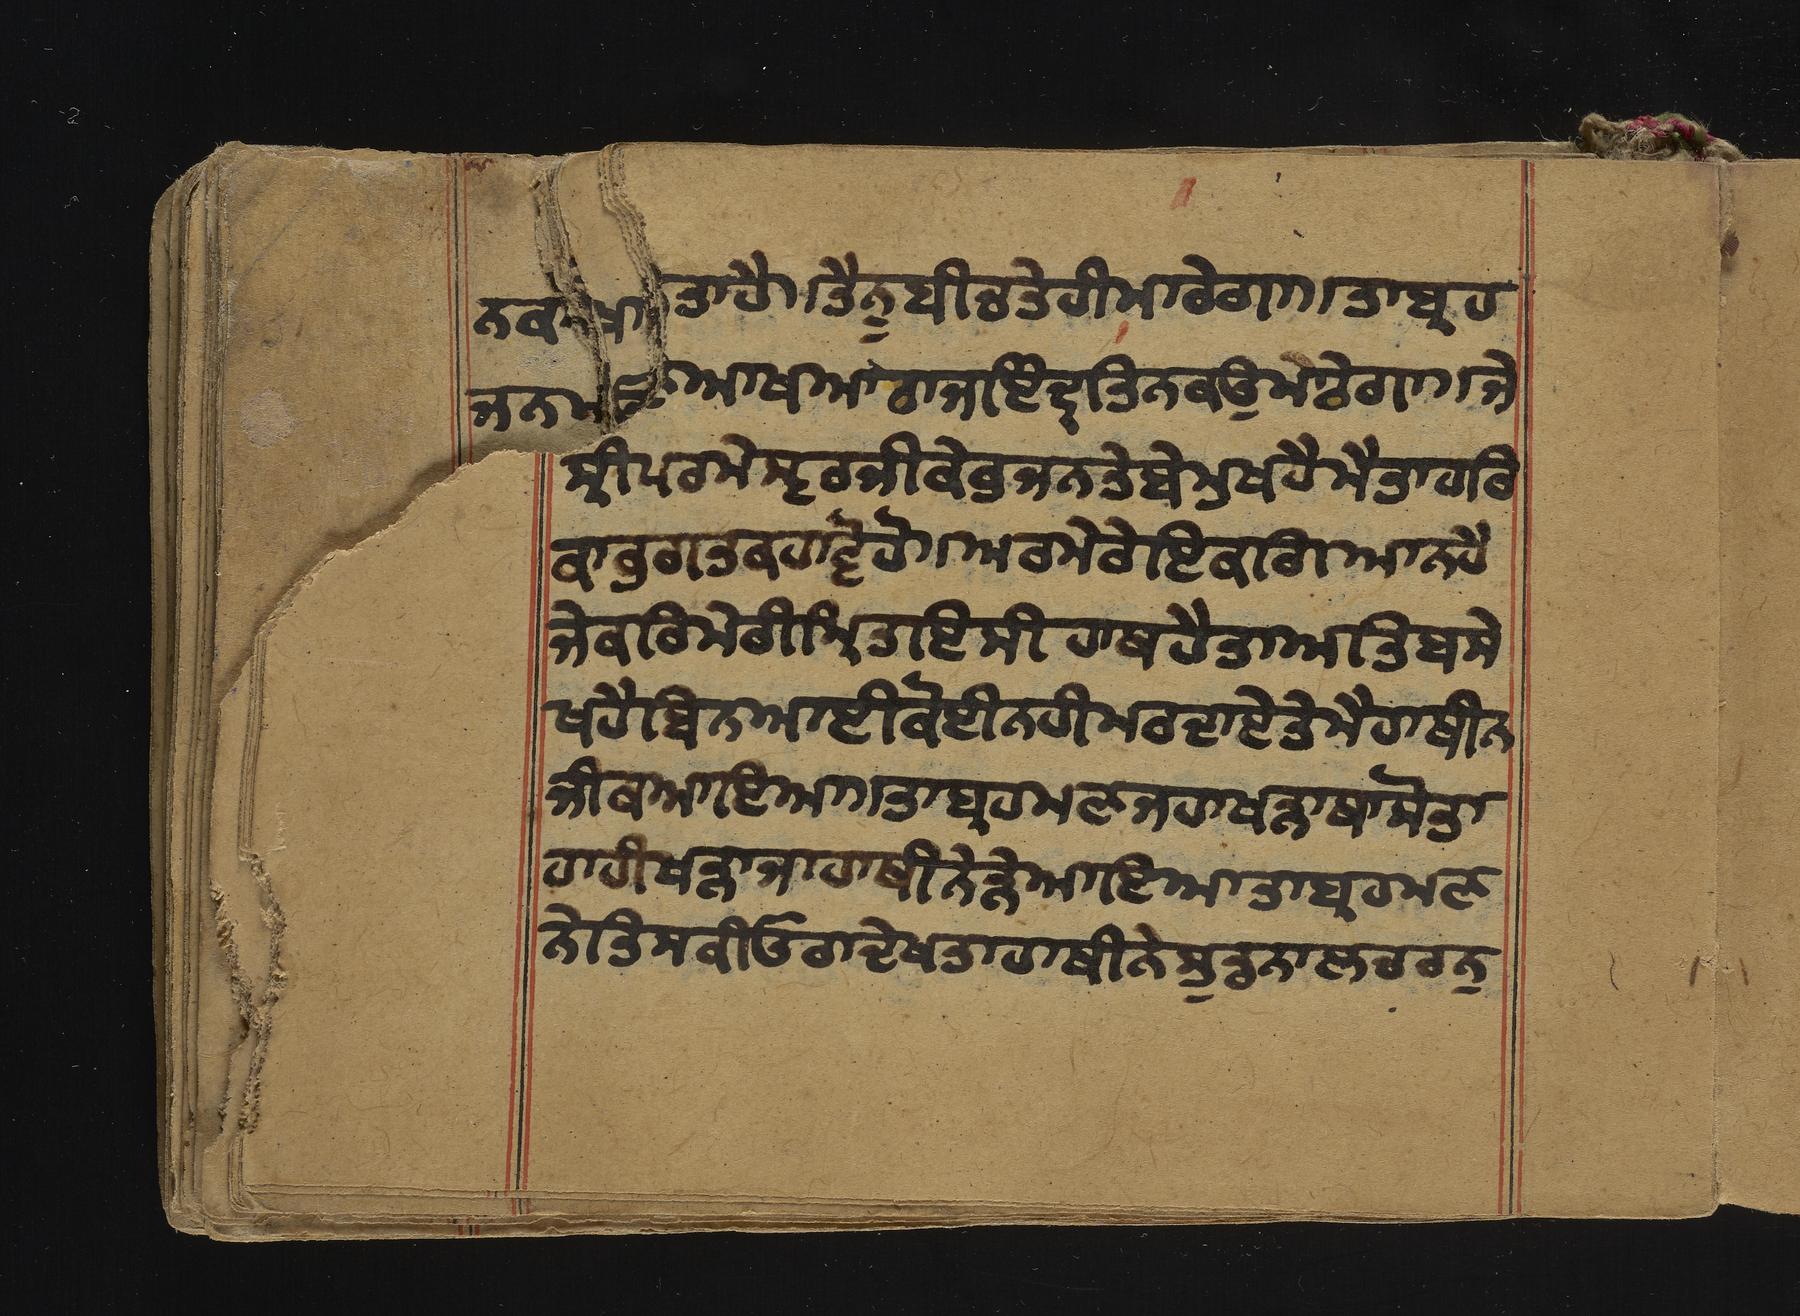 ਤਾਹੈ।ਤੈਨੁਬੀਚਤੇਹੀਮਾਰੇਗਾ।ਤਾਬ੍ਰਹ
ਆਖਆਰਾਜਾਇੰਦ੍ਰਤਿਨਕਉਮੇਠੇਗਾ।ਜੇ
ਸ੍ਰੀਪਰਮੇਸ੍ਵਰਜੀਕੇਭੁਜਨਤੇਬੇਮੁਖਹੈਮੈਤਾਹਰਿ
ਕਾਭੁਗਤਕਹਾਵੋਹੋ।ਅਰਮੇਰੇਇਕਗਿਆਨਹੈ
ਜੇਕਰਿਮੇਰੀਮ੍ਰਿਤਾਇਸੀਹਾਥਹੈਤਾਅਤਿਬਸੇ
ਖਹੈਬਿਨਆਈਕੋਈਨਹੀਮਰਦਾਏਤੇਮੈਹਾਥੀਨ
ਜੀਕਆਇਆ।ਤਾਬ੍ਰਹਮਣਜਹਾਖੜਾਥਾਸੋਤਾ
ਹਾਹੀਖੜਾਜਾਹਾਥੀਨੇੜੇਆਇਆਤਾਬ੍ਰਹਮਣ
ਨੇਤਿਸਕੀਓਰਾਦੇਖਤਾਹਾਥੀਨੇਸੁਡਨਾਲਚਰਨੁ